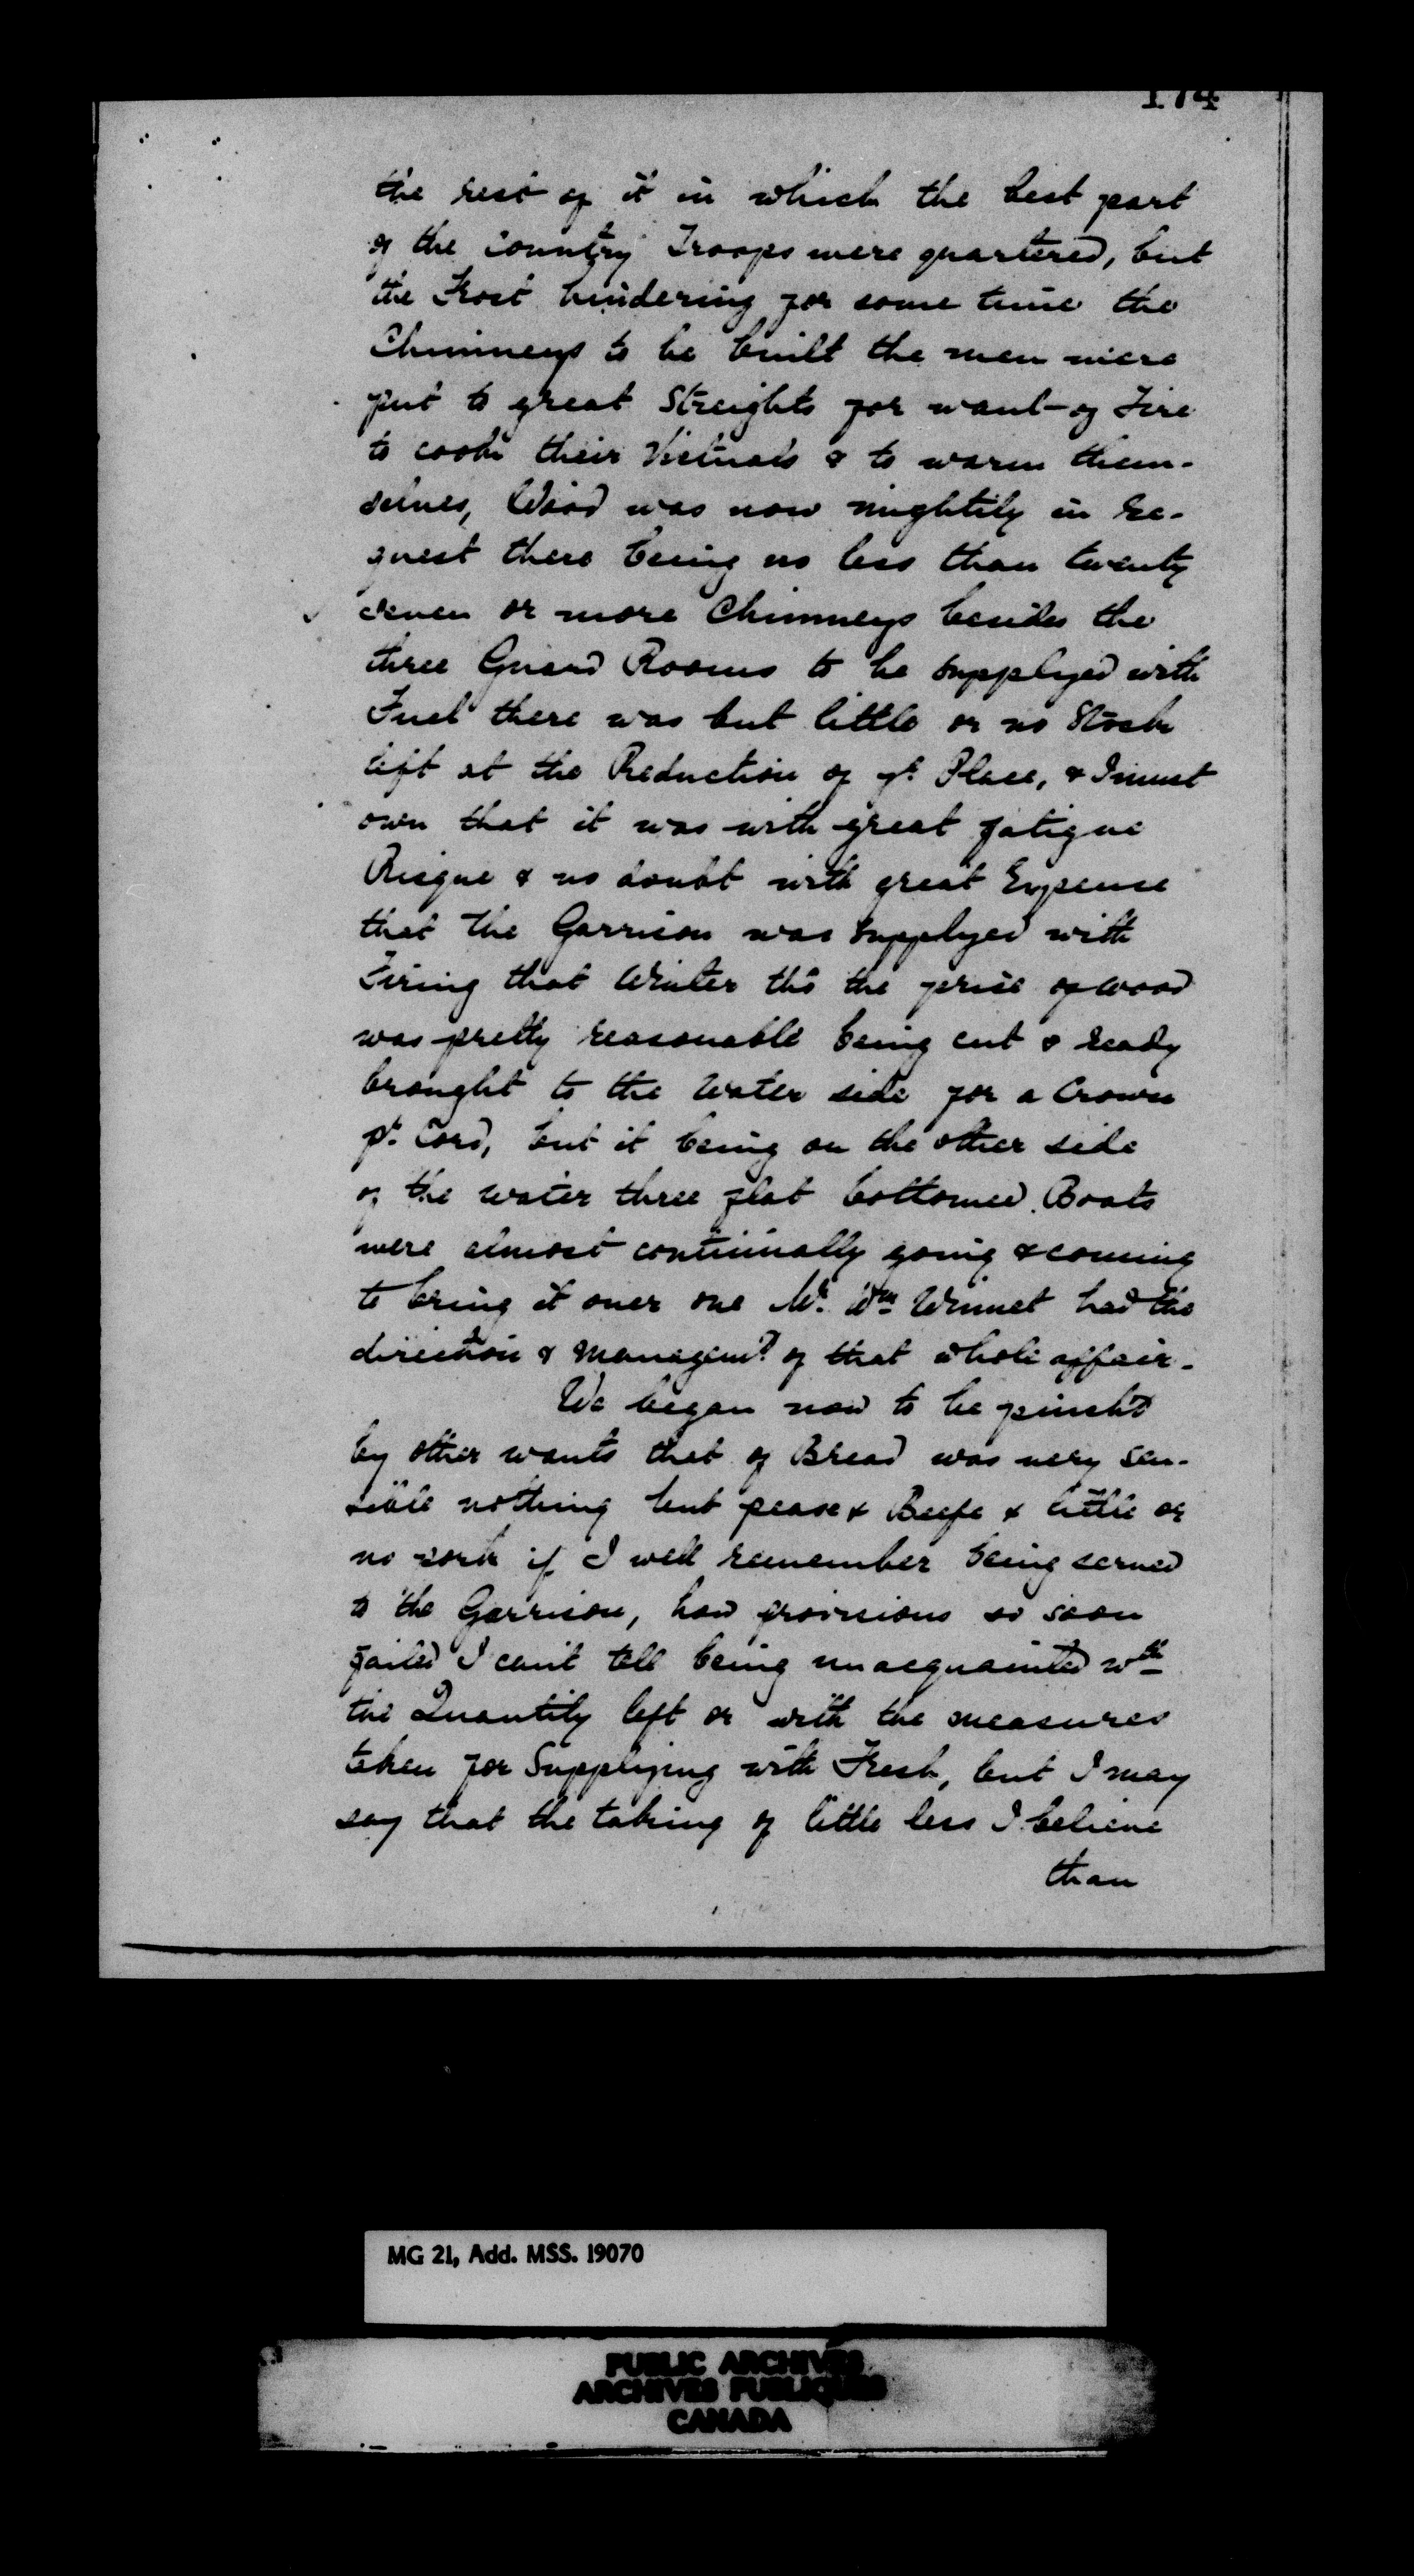 174
the rest of it in which the best part
of the country Troops were quartered, but
the Frost hindering for some time the
Chimneys to be built the men were
put to great Streights for want of Fire
to cook their Victuals & to warm them-
selves, Wood was now mightily in Re-
quest there being no less than twenty
seven or more Chimneys besides the
three Guard Rooms to be supplyed with
Fuel there was but little or no Stock
left at the Reduction of ye Place, & I must
own that it was with great fatigue
Risque & no doubt with great Expence
that the Garrison was supplyed with
Firing that Winter tho the price of wood
was pretty reasonable being cut & ready
brought to the Water side for a Crown
pr. Cord, but it being on the other side
of the water three flat bottomed Boats
were almost continually going & coming
to bring it over one Mr. Wm Winnet had the
direction & Managemt. of that whole affair.
We began now to be pincht
by other wants that of Bread was very sen-
sible nothing but pease & Beefe & little or
no Pork if I well remember being served
to the Garrison, how provisions so soon
failed I can't tell being unacquainted wth
the Quantity left or with the measures
taken for Supplying with Fresh, but I may
say that the taking of little less I believe
than
MG 21, Add. MSS. 19070
PUBLIC ARCHIVES
ARCHIVES PUBLIQUES
CANADA